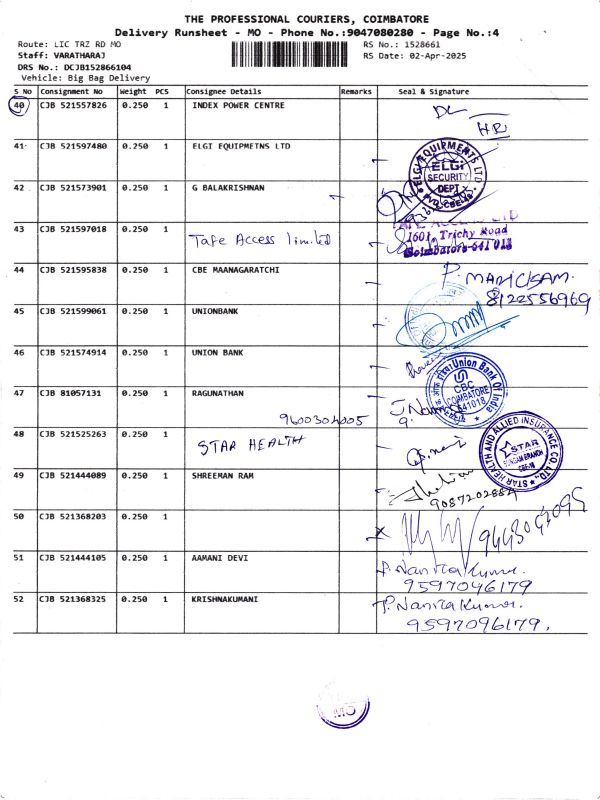 THE PROFESSIONAL COURIERS, COIMBATORE
Delivery Runsheet - MO - Phone No.:9047080280 - Page No.:4
Route: LIC TRZ RD MO RS No.: 1528661
Staff: VARATHARAJ RS Date: 02-Apr-2025
DRS No.: DCJB152866104
Vehicle: Big Bag Delivery
S No Consignment No Weight PCS Consignee Details Remarks Seal & Signature
40 CJB 521557826 0.250 1 INDEX POWER CENTRE
HR
41 CJB 521597480 0.250 1 ELGI EQUIPMETNS LTD
ELGI EQUIPMENTS LTD
ELGI
SECURITY
DEPT
42 CJB 521573901 0.250 1 G BALAKRISHNAN
43 CJB 521597018 0.250 1 Tafe Access limited
1601, Trichy Road
Coimbatore-641 018
44 CJB 521595838 0.250 1 CBE MAANAGARATCHI
8122556969
45 CJB 521599061 0.250 1 UNIONBANK
46 CJB 521574914 0.250 1 UNION BANK
Union Bank Of India
CBC
COIMBATORE
641018
47 CJB 81057131 0.250 1 RAGUNATHAN
48 CJB 521525263 0.250 1 STAR HEALTH
STAR HEALTH AND ALLIED INSURANCE CO.LTD.
STAR
49 CJB 521444089 0.250 1 SHREEMAN RAM
50 CJB 521368203 0.250 1
51 CJB 521444105 0.250 1 AAMANI DEVI
9597096179
52 CJB 521368325 0.250 1 KRISHNAKUMANI
9597096179.
MO